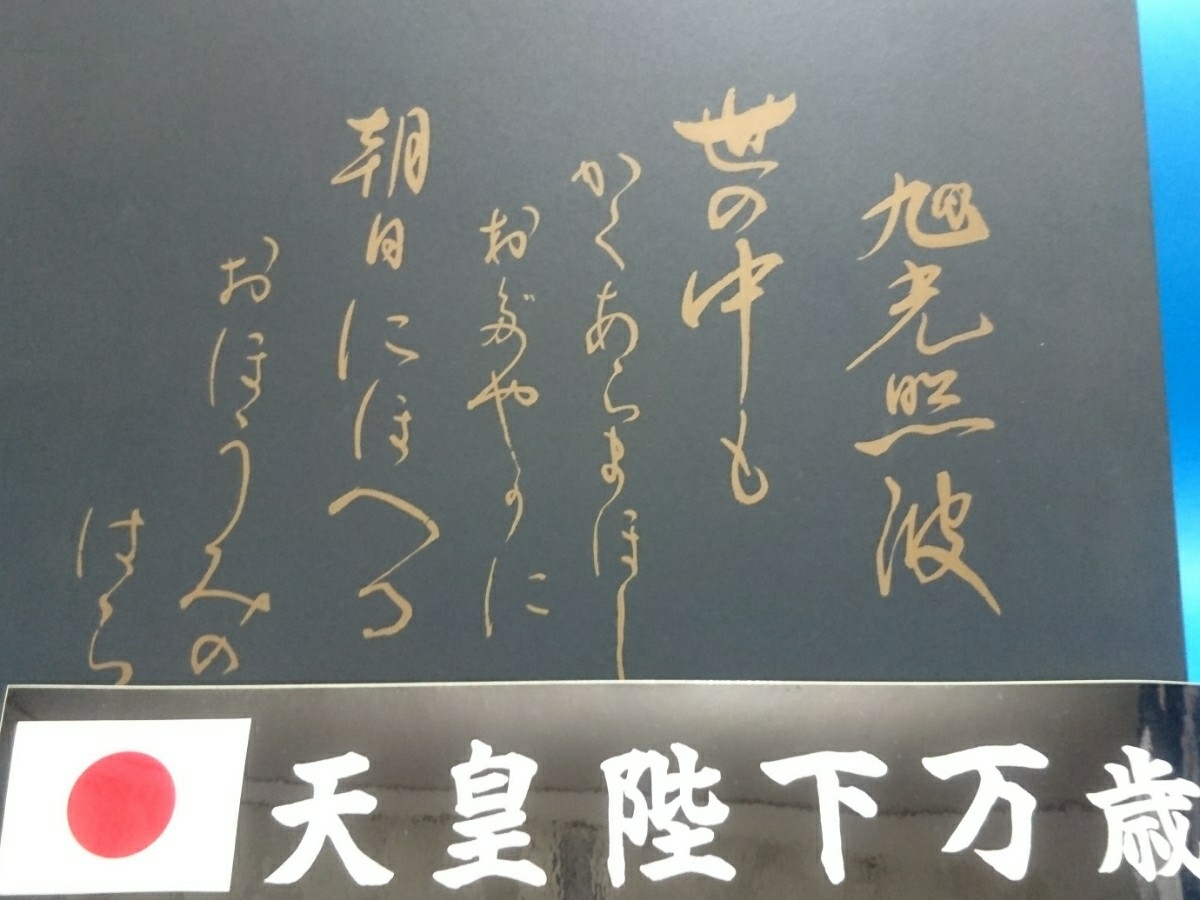 旭光照波
世の中も
かくあらまほし
おだやかに
朝日にほへる
おほうみの
はら
天皇陛下万歳